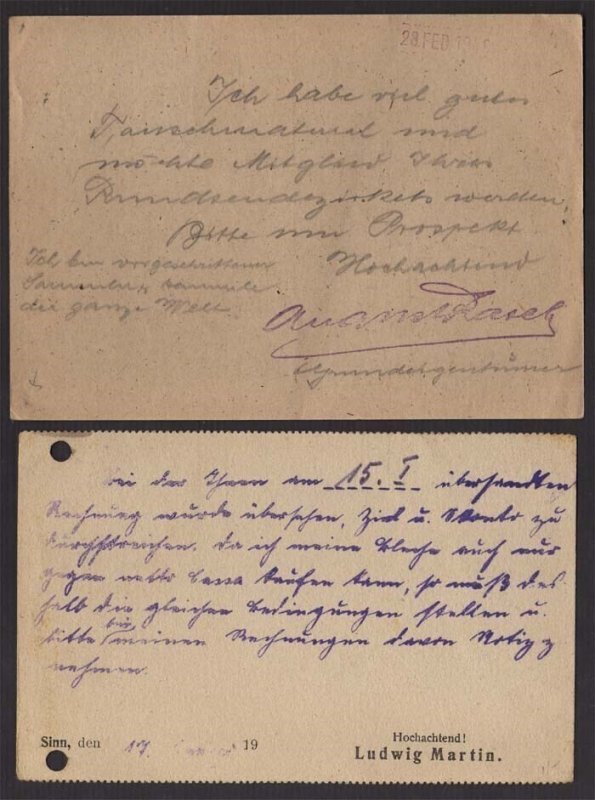 28. FEB. 19
Ich habe viel gutes
Tauschmaterial und
möchte Mitglied Ihres
Rundsendezirkels werden.
Bitte um Prospekt
Ich bin vorgeschrittener
Hochachtend
Sammler, sammle
die ganze Welt.
August Rasch
Grundeigentümer
Bei der Ihnen am 15. I übersandten
Rechnung wurde übersehen, Ziel u. Skonto zu
durchstreichen. Da ich meine Bleche auch nur
gegen netto Cassa kaufen kann, so muß des
halb die gleichen Bedingungen stellen u.
bitte bei meinen Rechnungen davon Notiz z
nehmen.
Sinn, den 17. 19
Hochachtend!
Ludwig Martin.